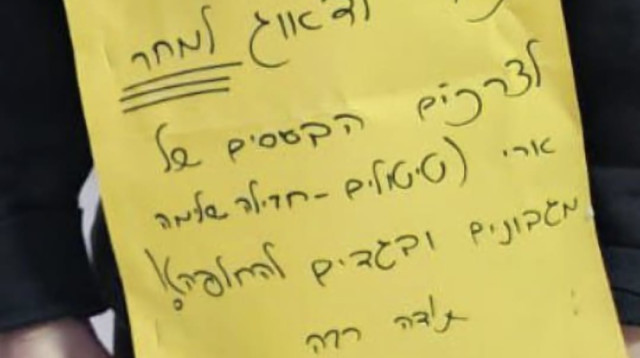 לדאוג למחר
לצרכים הבסיסים של
ארי (טיטולים - חבילה שלמה
מגבונים ובגדים להחלפה)!
תודה רבה